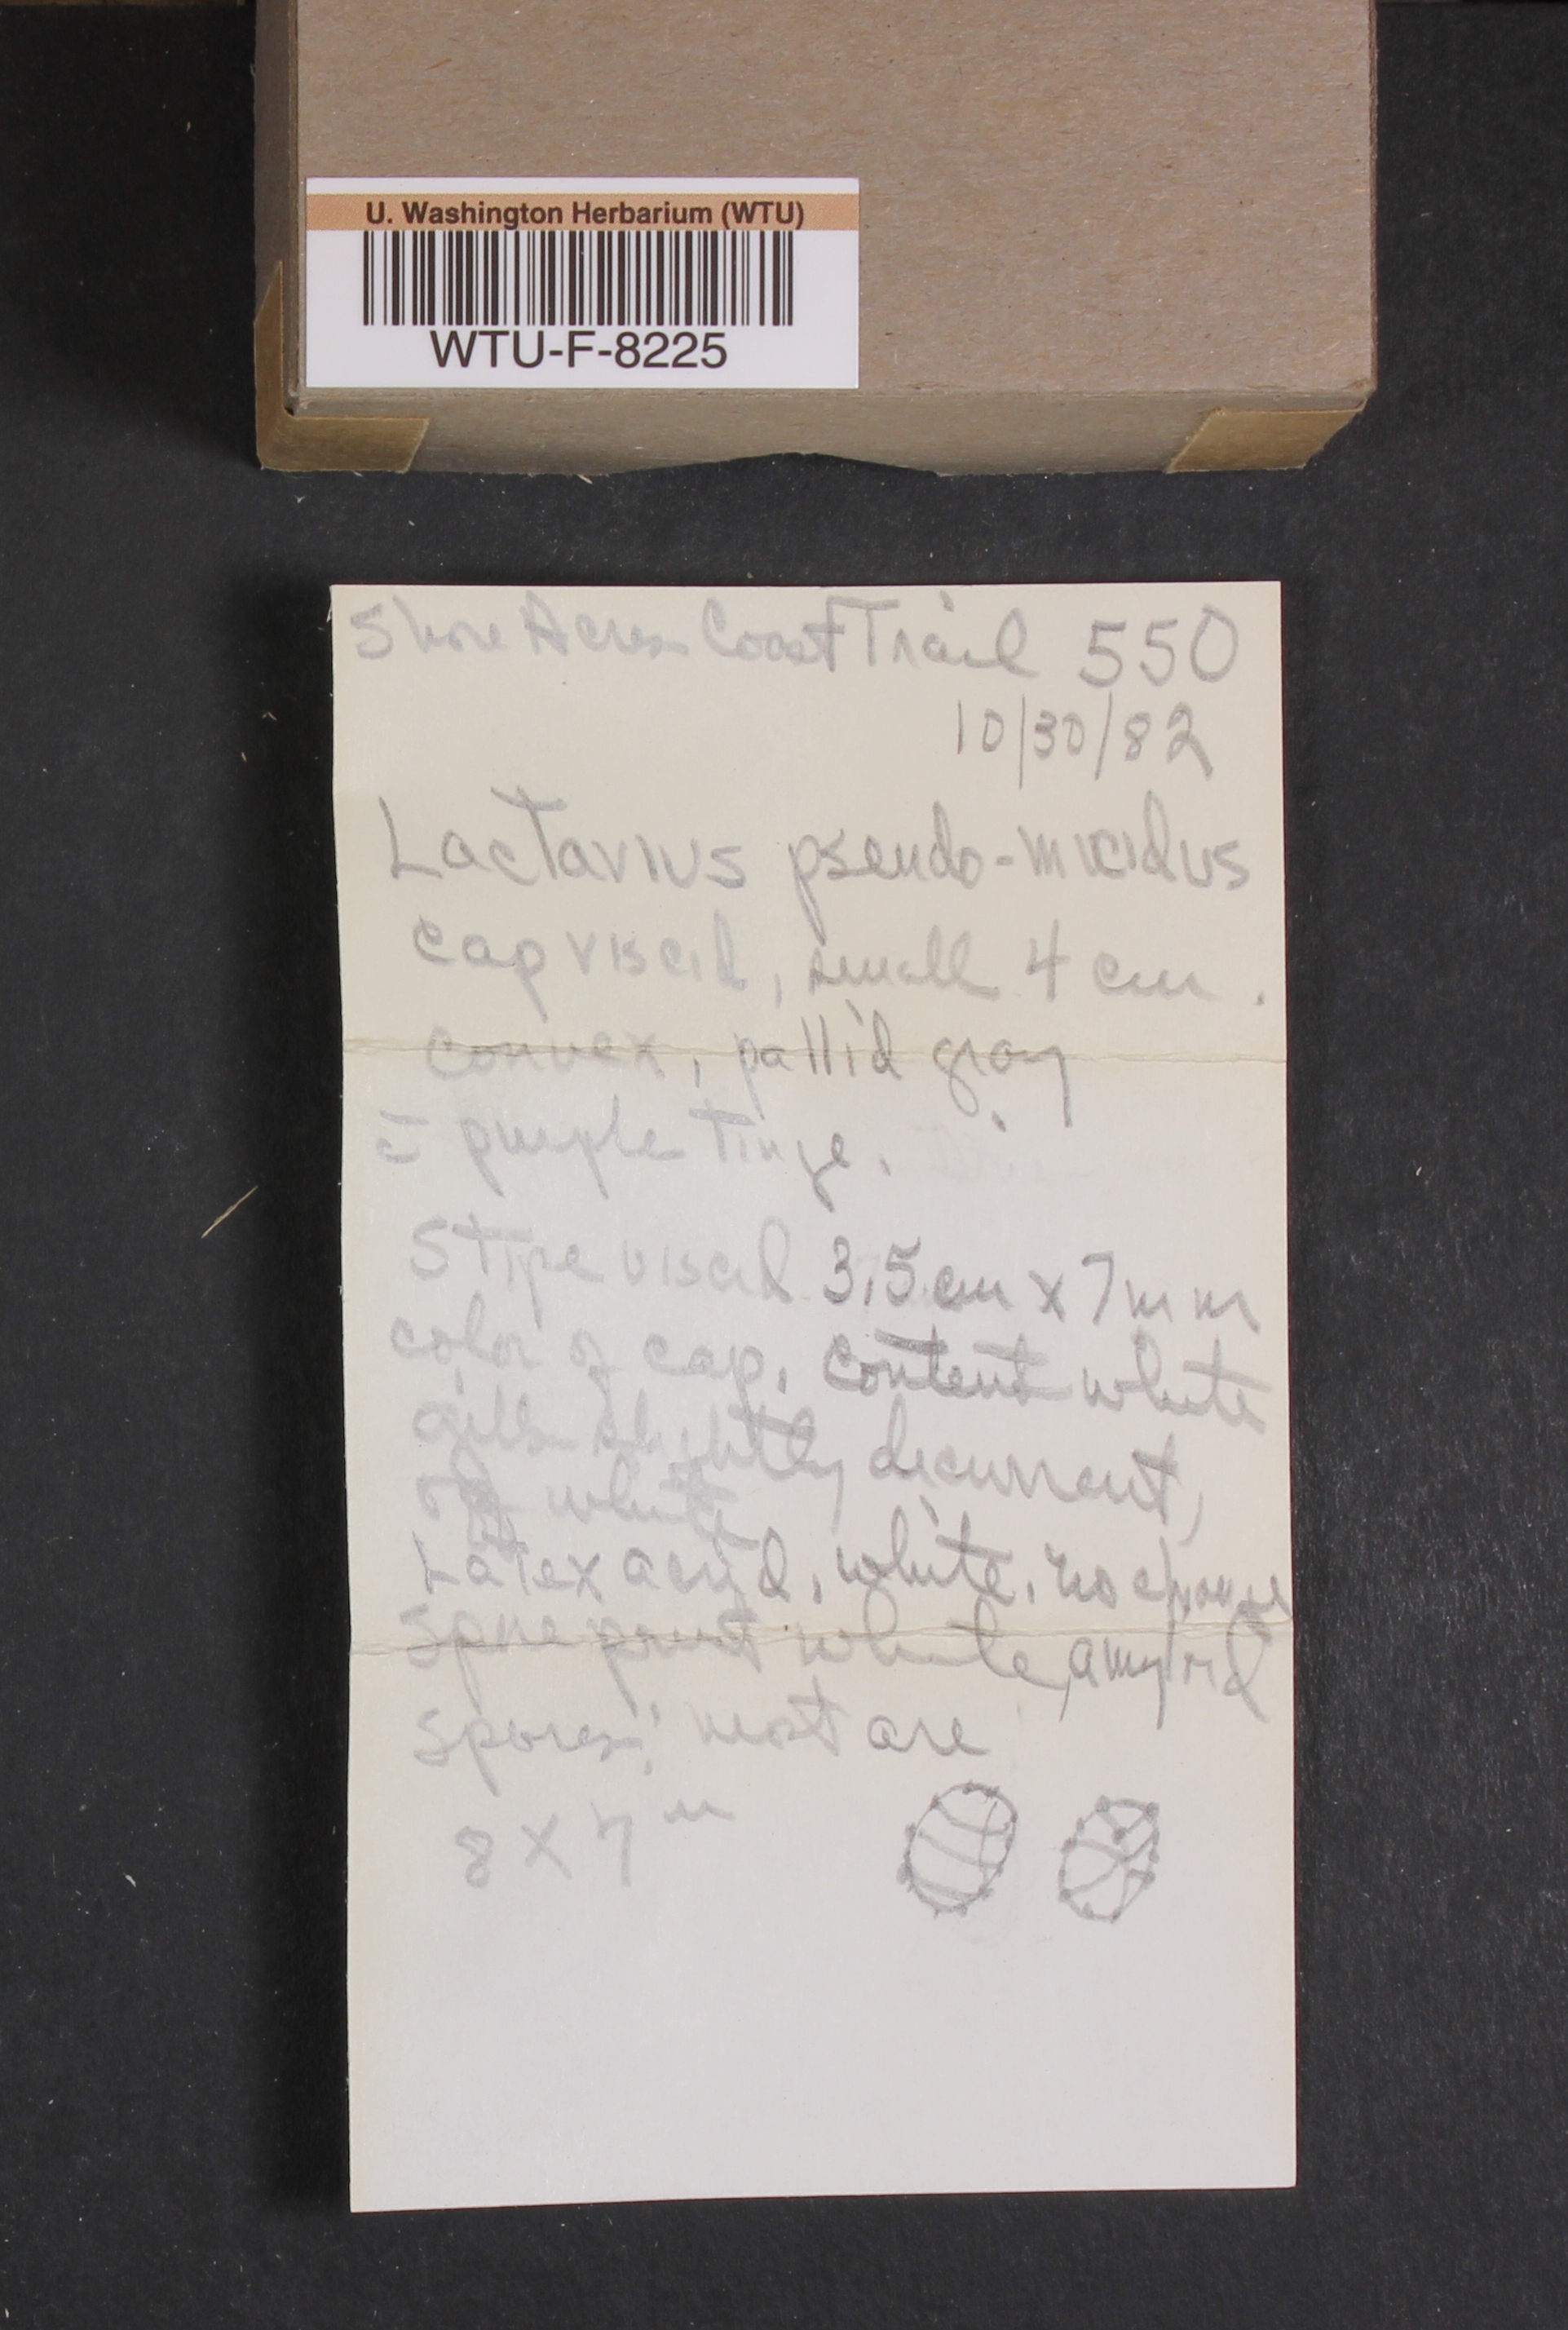 U. Washington Herbarium (WTU)
WTU-F-8225
Shore Acres Coast Trail 550
10/30/82
Lactarius pseudo-mucidus
cap viscid, small 4 cm.
convex, pallid gray
c̄ purple tinge.
Stipe viscid 3.5 cm x 7 mm
color of cap. Content white
gills slightly decurrent,
off white
Latex acrid, white, no change
Spore print white, amyloid
spores: most are
8 X 7 u